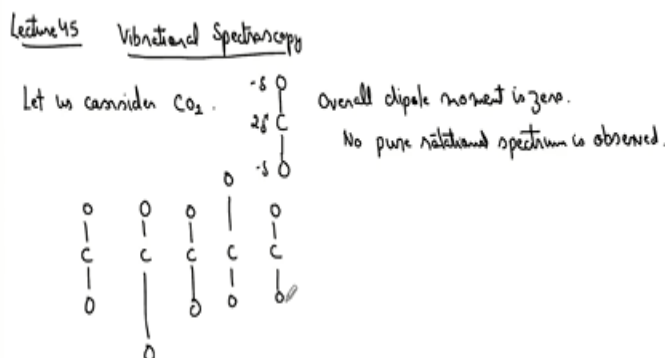 Lecture 45 Vibrational Spectroscopy
Let us cansider CO2. -δ O Overall dipole moment is zero.
2δ C
No pure rotational spectrum is observed.
-δ O
O
O O O O
C C C C C
O O O O
O